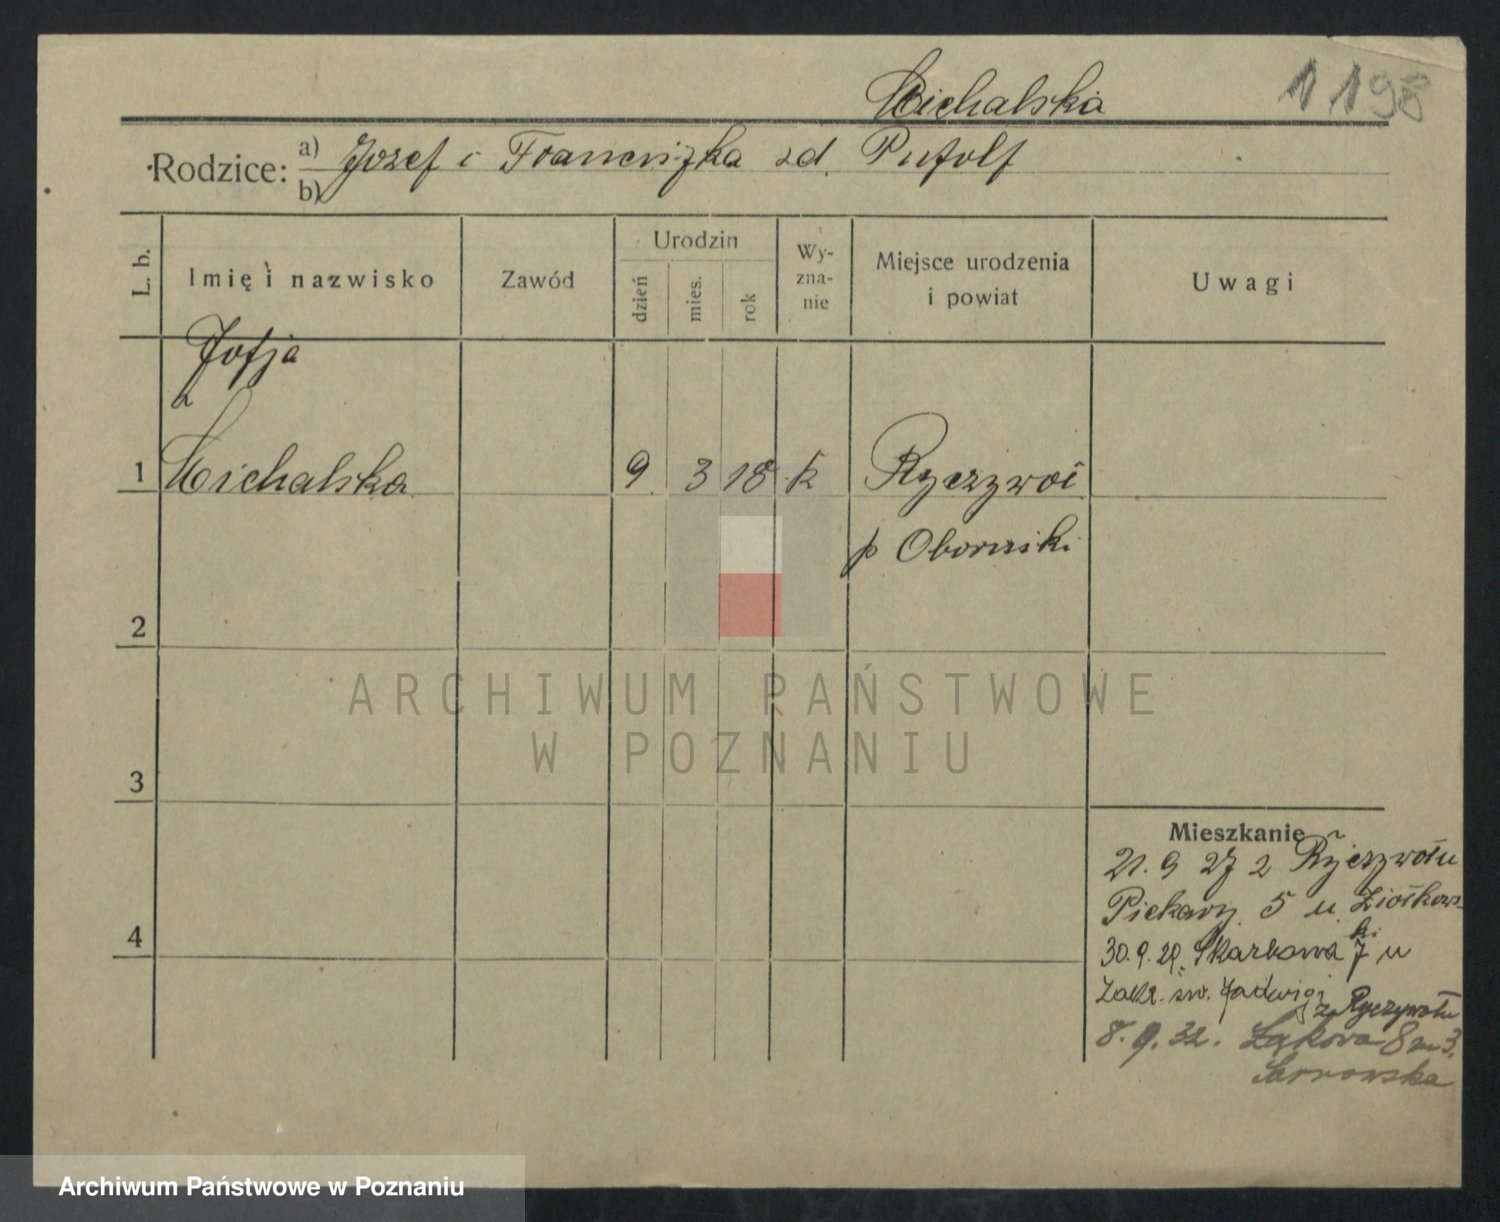 Michalska
1198
Rodzice: a) Jozef i Franciszka zd. Putolf
b)
L. b.
Imię i nazwisko
Zawód
Urodzin
dzień
mies.
rok
Wy-
zna-
nie
Miejsce urodzenia
i powiat
Uwagi
Zofja
1 Michalska 9 3 18 k Ryczywół
p Oborniki
2
ARCHIWUM PAŃSTWOWE
W POZNANIU
3
4
Mieszkanie
21. 9 27 z Ryczywołu
Piekary 5 u Ziołkows-
ki
30.9.29. Skarbowa 7 u
Zakł. św. Jadwigi
z Ryczywołu
8. 9. 32. Łąkowa 8 m 3.
Archiwum Państwowe w Poznaniu